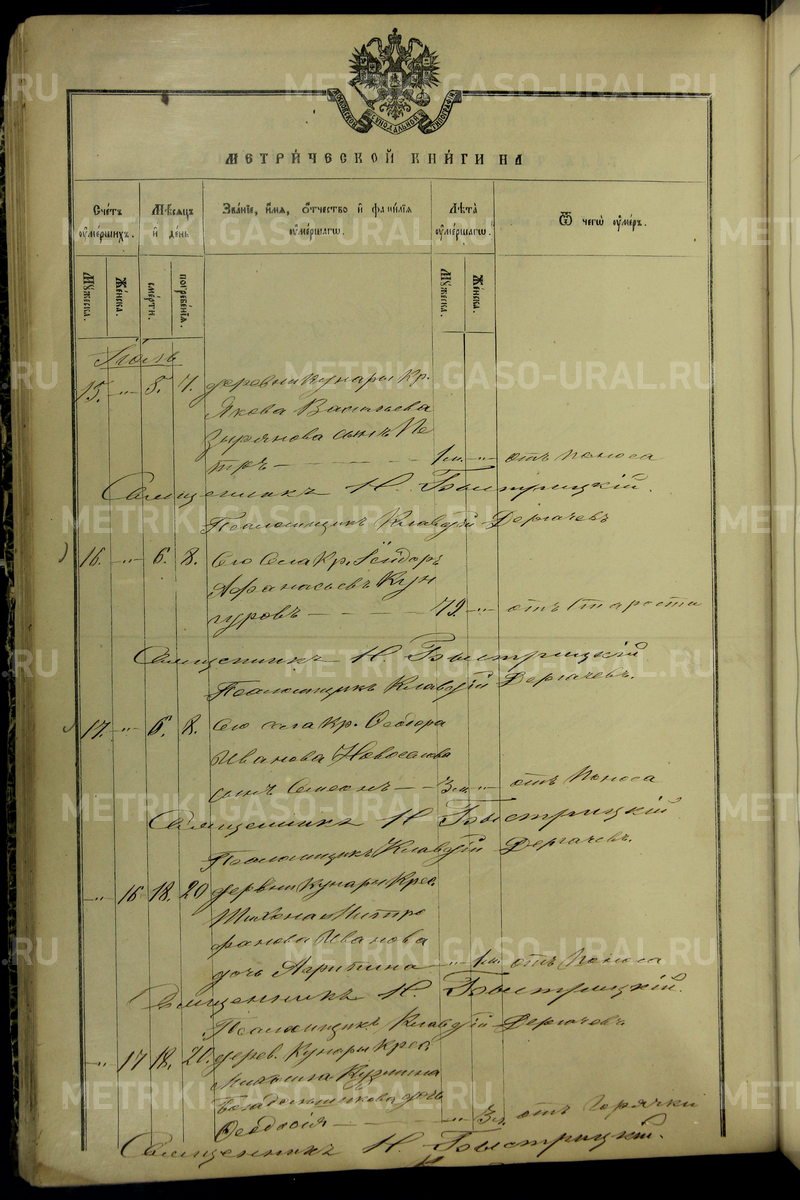 МЕТРИ́ЧЕСКОЙ КНИ́ГИ НА
Сче́тъ ᲂу҆ме́ршихъ.
Мѣ́сяцъ и҆ де́нь
Зва́нїе, и҆́мя, ѻ҆́тчество и҆ фами́лїя ᲂу҆ме́ршагѡ.
Лѣ́та ᲂу҆ме́ршагѡ.
Ѿ чегѡ̀ ᲂу҆́меръ.
Мꙋ́жеска.
Же́нска.
сме́рти.
погребе́нїя.
Мꙋ́жеска.
Же́нска.
Іюль
15. „ 5. 7. деревни Кунары Кр.
Якова Васильева
Зырянова сынъ Пе
тръ — 1 м. „ отъ поноса
Священникъ Н. Быстрицкій.
Псаломщикъ Клавдій Дергачевъ
16. „ 6. 8. Сего Села Кр. Ѳеодоръ
Афанасьевъ Кун
гуровъ — 79. „ отъ старости
Священникъ Н. Быстрицкій
Псаломщикъ Клавдій Дергачевъ.
17. „ 6. 8. Сего села Кр. Ѳеодора
Иванова Новоселова
сынъ Симеонъ — 3 м. „ отъ поноса
Священникъ Н. Быстрицкій
Псаломщикъ Клавдій Дергачевъ.
„ 16 18. 20 деревни Кунары Крес.
Тихона Митро
фанова Иванова
дочь Агрипина — „ 1 м. отъ поноса
Священникъ Н. Быстрицкій.
Псаломщикъ Клавдій Дергачевъ
„ 17 18. 20. дерев. Кунары Крес.
Михаила Кузмина
дочь
Ѳеодосія — „ 3 отъ горячки
Священникъ Н. Быстрицкій.
METRIKI.GASO-URAL.RU